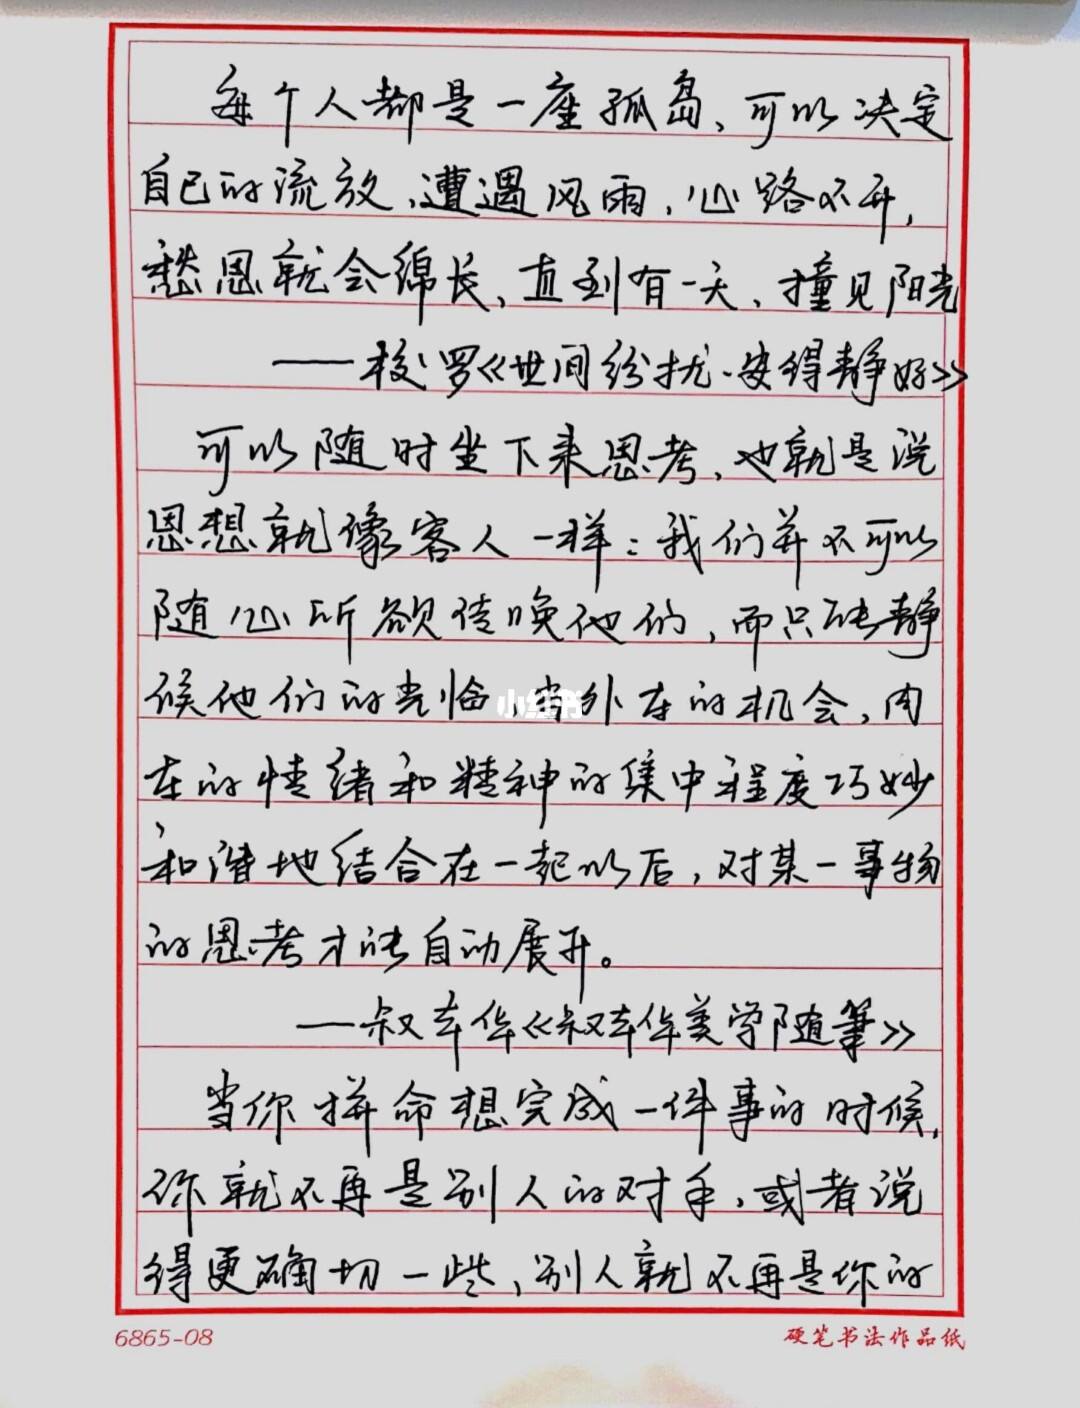 每个人都是一座孤岛、可以决定
自己的流放、遭遇风雨，心路不开，
愁思就会绵长，直到有一天，撞见阳光
——梭罗《世间纷扰·安得静好》
可以随时坐下来思考，也就是说
思想就像客人一样：我们并不可以
随心所欲传唤他们，而只能静
候他们的光临，当外在的机会，内
在的情绪和精神的集中程度巧妙
和谐地结合在一起以后，对某一事物
的思考才能自动展开。
——叔本华《叔本华美学随筆》
当你拼命想完成一件事的时候，
你就不再是别人的对手，或者说
得更确切一些，别人就不再是你的
小红书
6865-08
硬笔书法作品纸